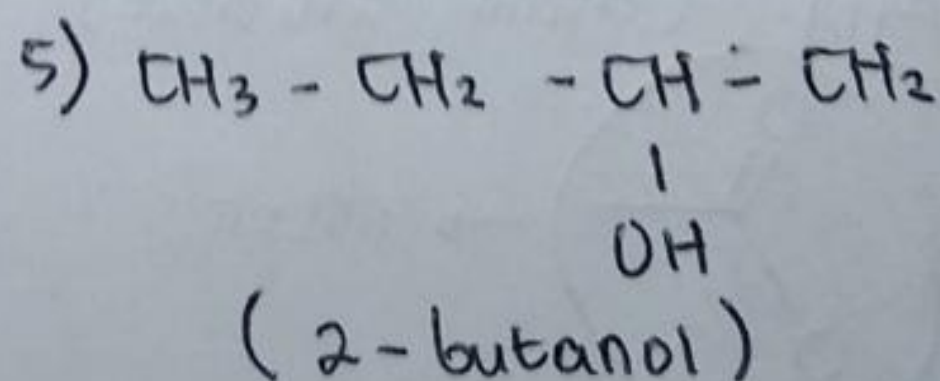 5) CH3 - CH2 - CH - CH2
|
OH
(2-butanol)